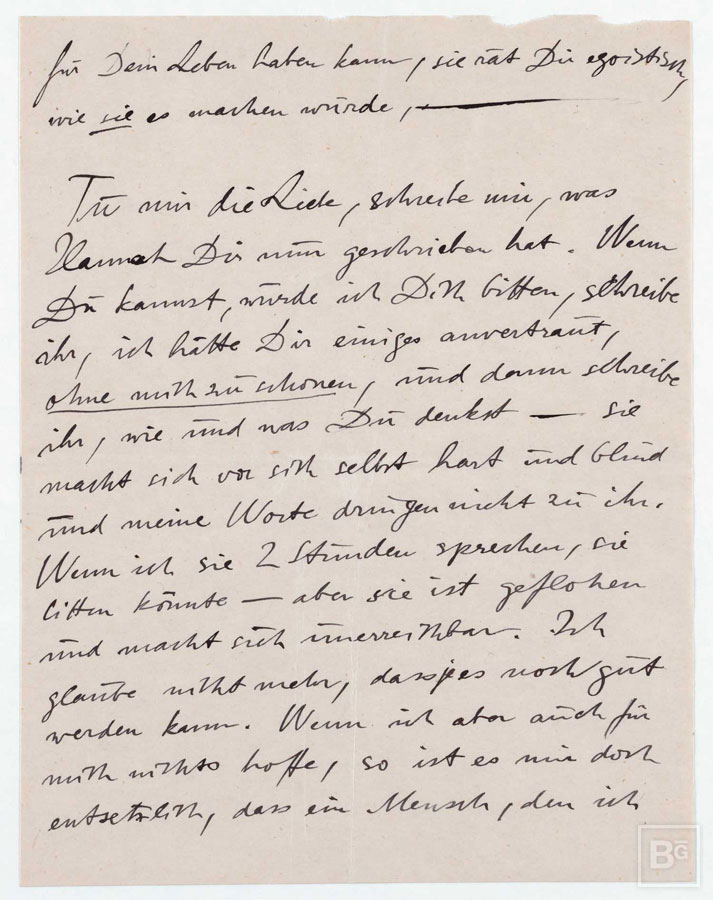 für Dein Leben haben kann, sie rät Dir egoistisch,
wie sie es machen würde, —
Tu mir die Liebe, schreibe mir, was
Hannah Dir nun geschrieben hat. Wenn
Du kannst, würde ich Dich bitten, schreibe
ihr, ich hätte Dir einiges anvertraut,
ohne mich zu schonen, und dann schreibe
ihr, wie und was Du denkst — sie
macht sich vor sich selbst hart und blind
und meine Worte dringen nicht zu ihr.
Wenn ich sie 2 Stunden sprechen, sie
bitten könnte — aber sie ist geflohen
und macht sich unerreichbar. Ich
glaube nicht mehr, dass es noch gut
werden kann. Wenn ich aber auch für
mich nichts hoffe, so ist es mir doch
entsetzlich, dass ein Mensch, den ich
BG